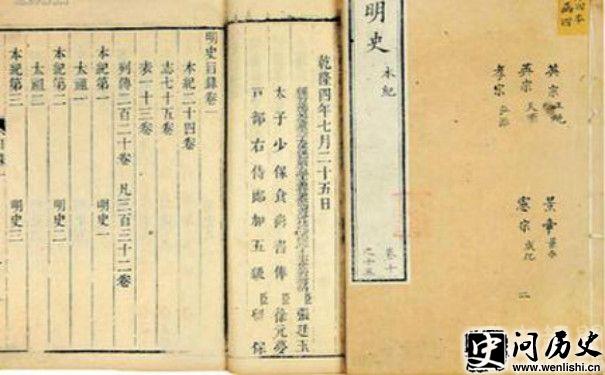 英宗 正統 景帝 景泰
英宗 天順 憲宗 成化 二
孝宗 弘治
明史 本紀
卷十
之十五
乾隆四年七月二十五日
臣張廷玉
太子少保食尚書俸臣徐元夢
戶部右侍郎加五級臣留保
明史目錄卷一
本紀二十四卷
志七十五卷
表一十三卷
列傳二百二十卷 凡三百三十二卷
本紀第一 明史一
太祖一
本紀第二 明史二
太祖二
本紀第三 明史三
史 问历史
www.wenlishi.cn